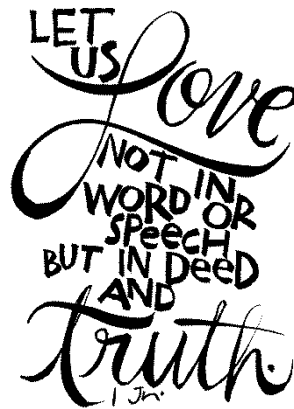 LET
US Love
NOT IN
WORD OR
SPeecH
BUT IN DeeD
AND
truth.
1 Jn.